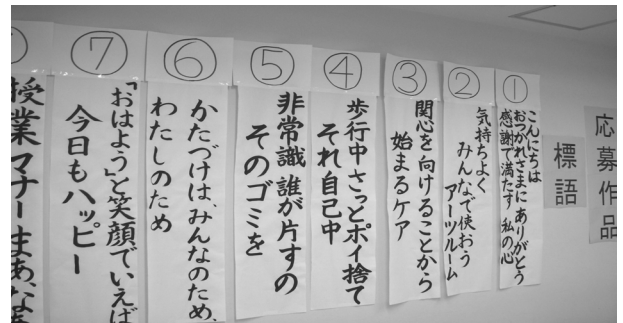 応募作品
標語
①
こんにちは
おつかれさまにありがとう
感謝で満たす 私の心
②
気持ちよく
みんなで使おう
アーツルーム
③
関心を向けることから
始まるケア
④
歩行中さっとポイ捨て
それ自己中
⑤
非常識 誰が片すの
そのゴミを
⑥
かたづけは、みんなのため、
わたしのため
⑦
「おはよう」と笑顔でいえば
今日もハッピー
授業マナーまあ、な